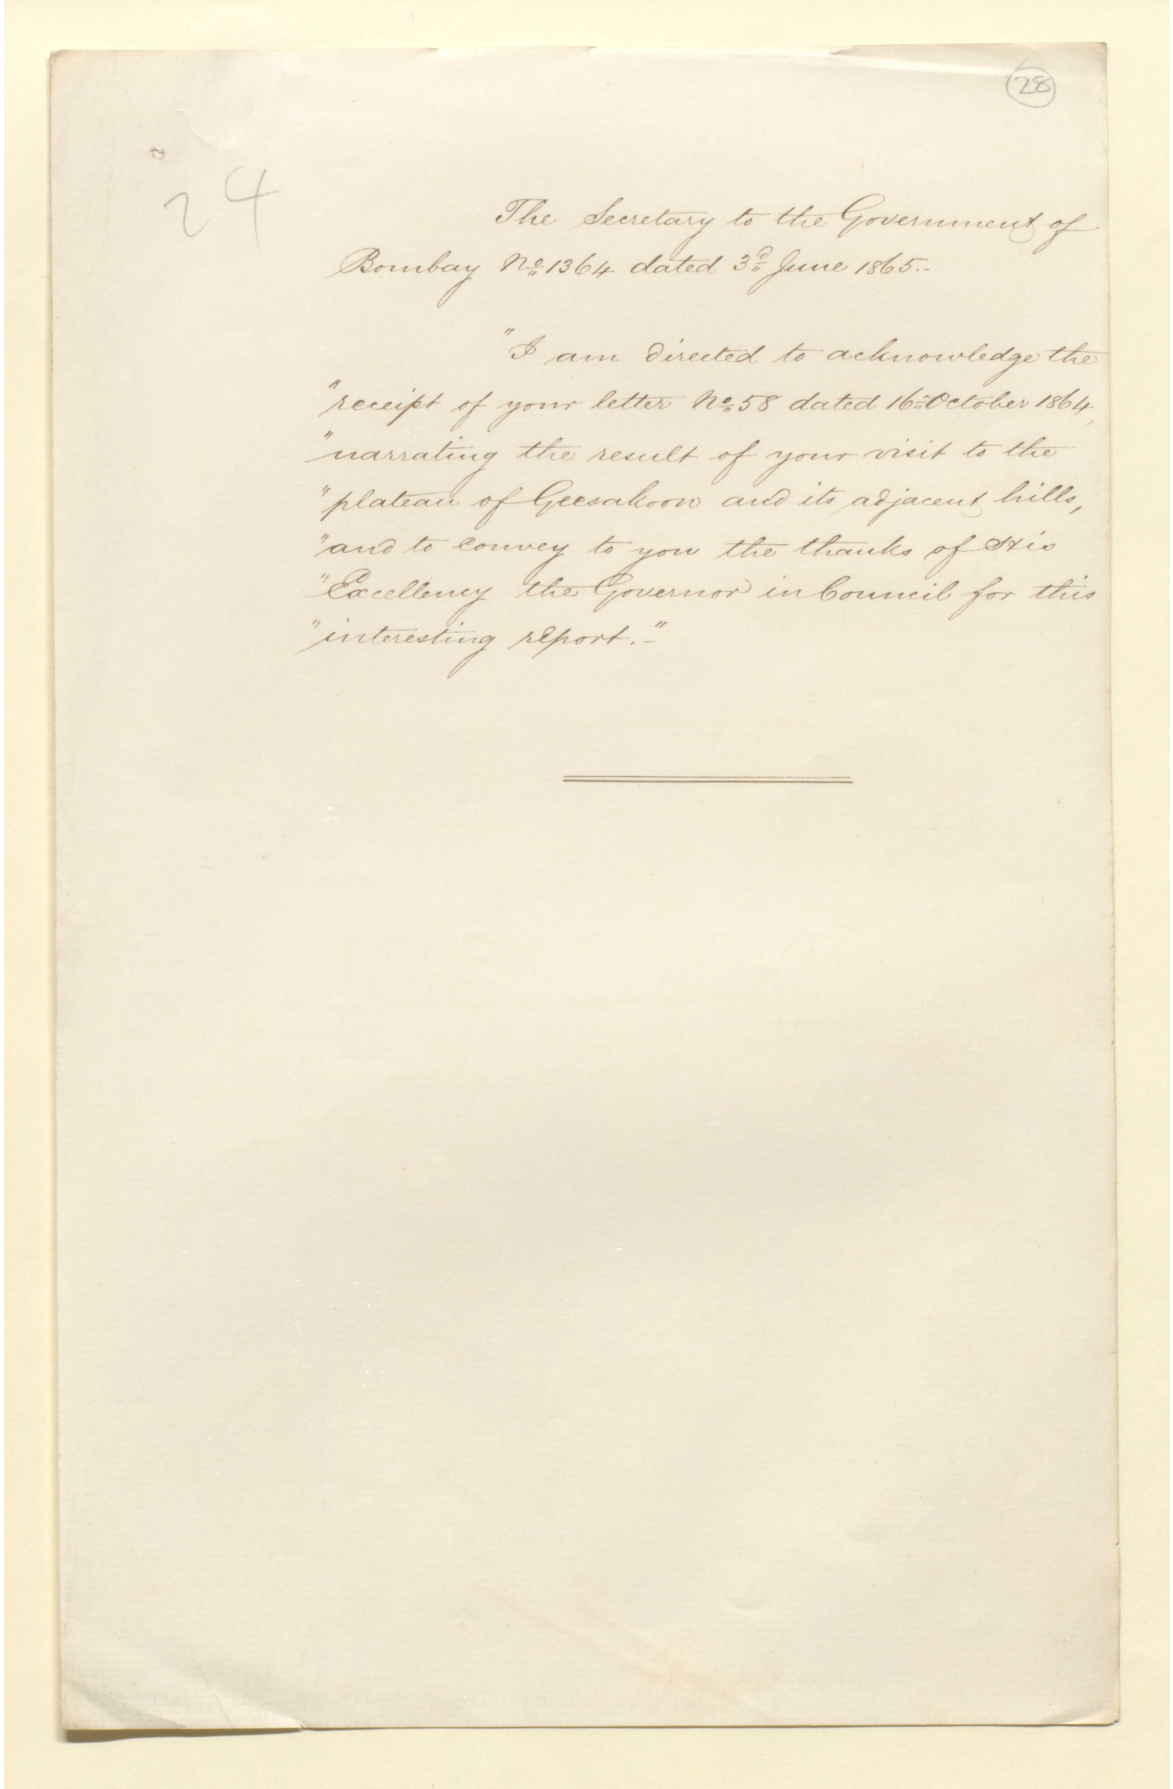 28
24
The Secretary to the Government of
Bombay No 1364 dated 3d June 1865.-
"I am directed to acknowledge the
"receipt of your letter No 58 dated 16 October 1864,
"narrating the result of your visit to the
"plateau of Geesakoon and its adjacent hills,
"and to convey to you the thanks of His
"Excellency the Governor in Council for this
"interesting report."-